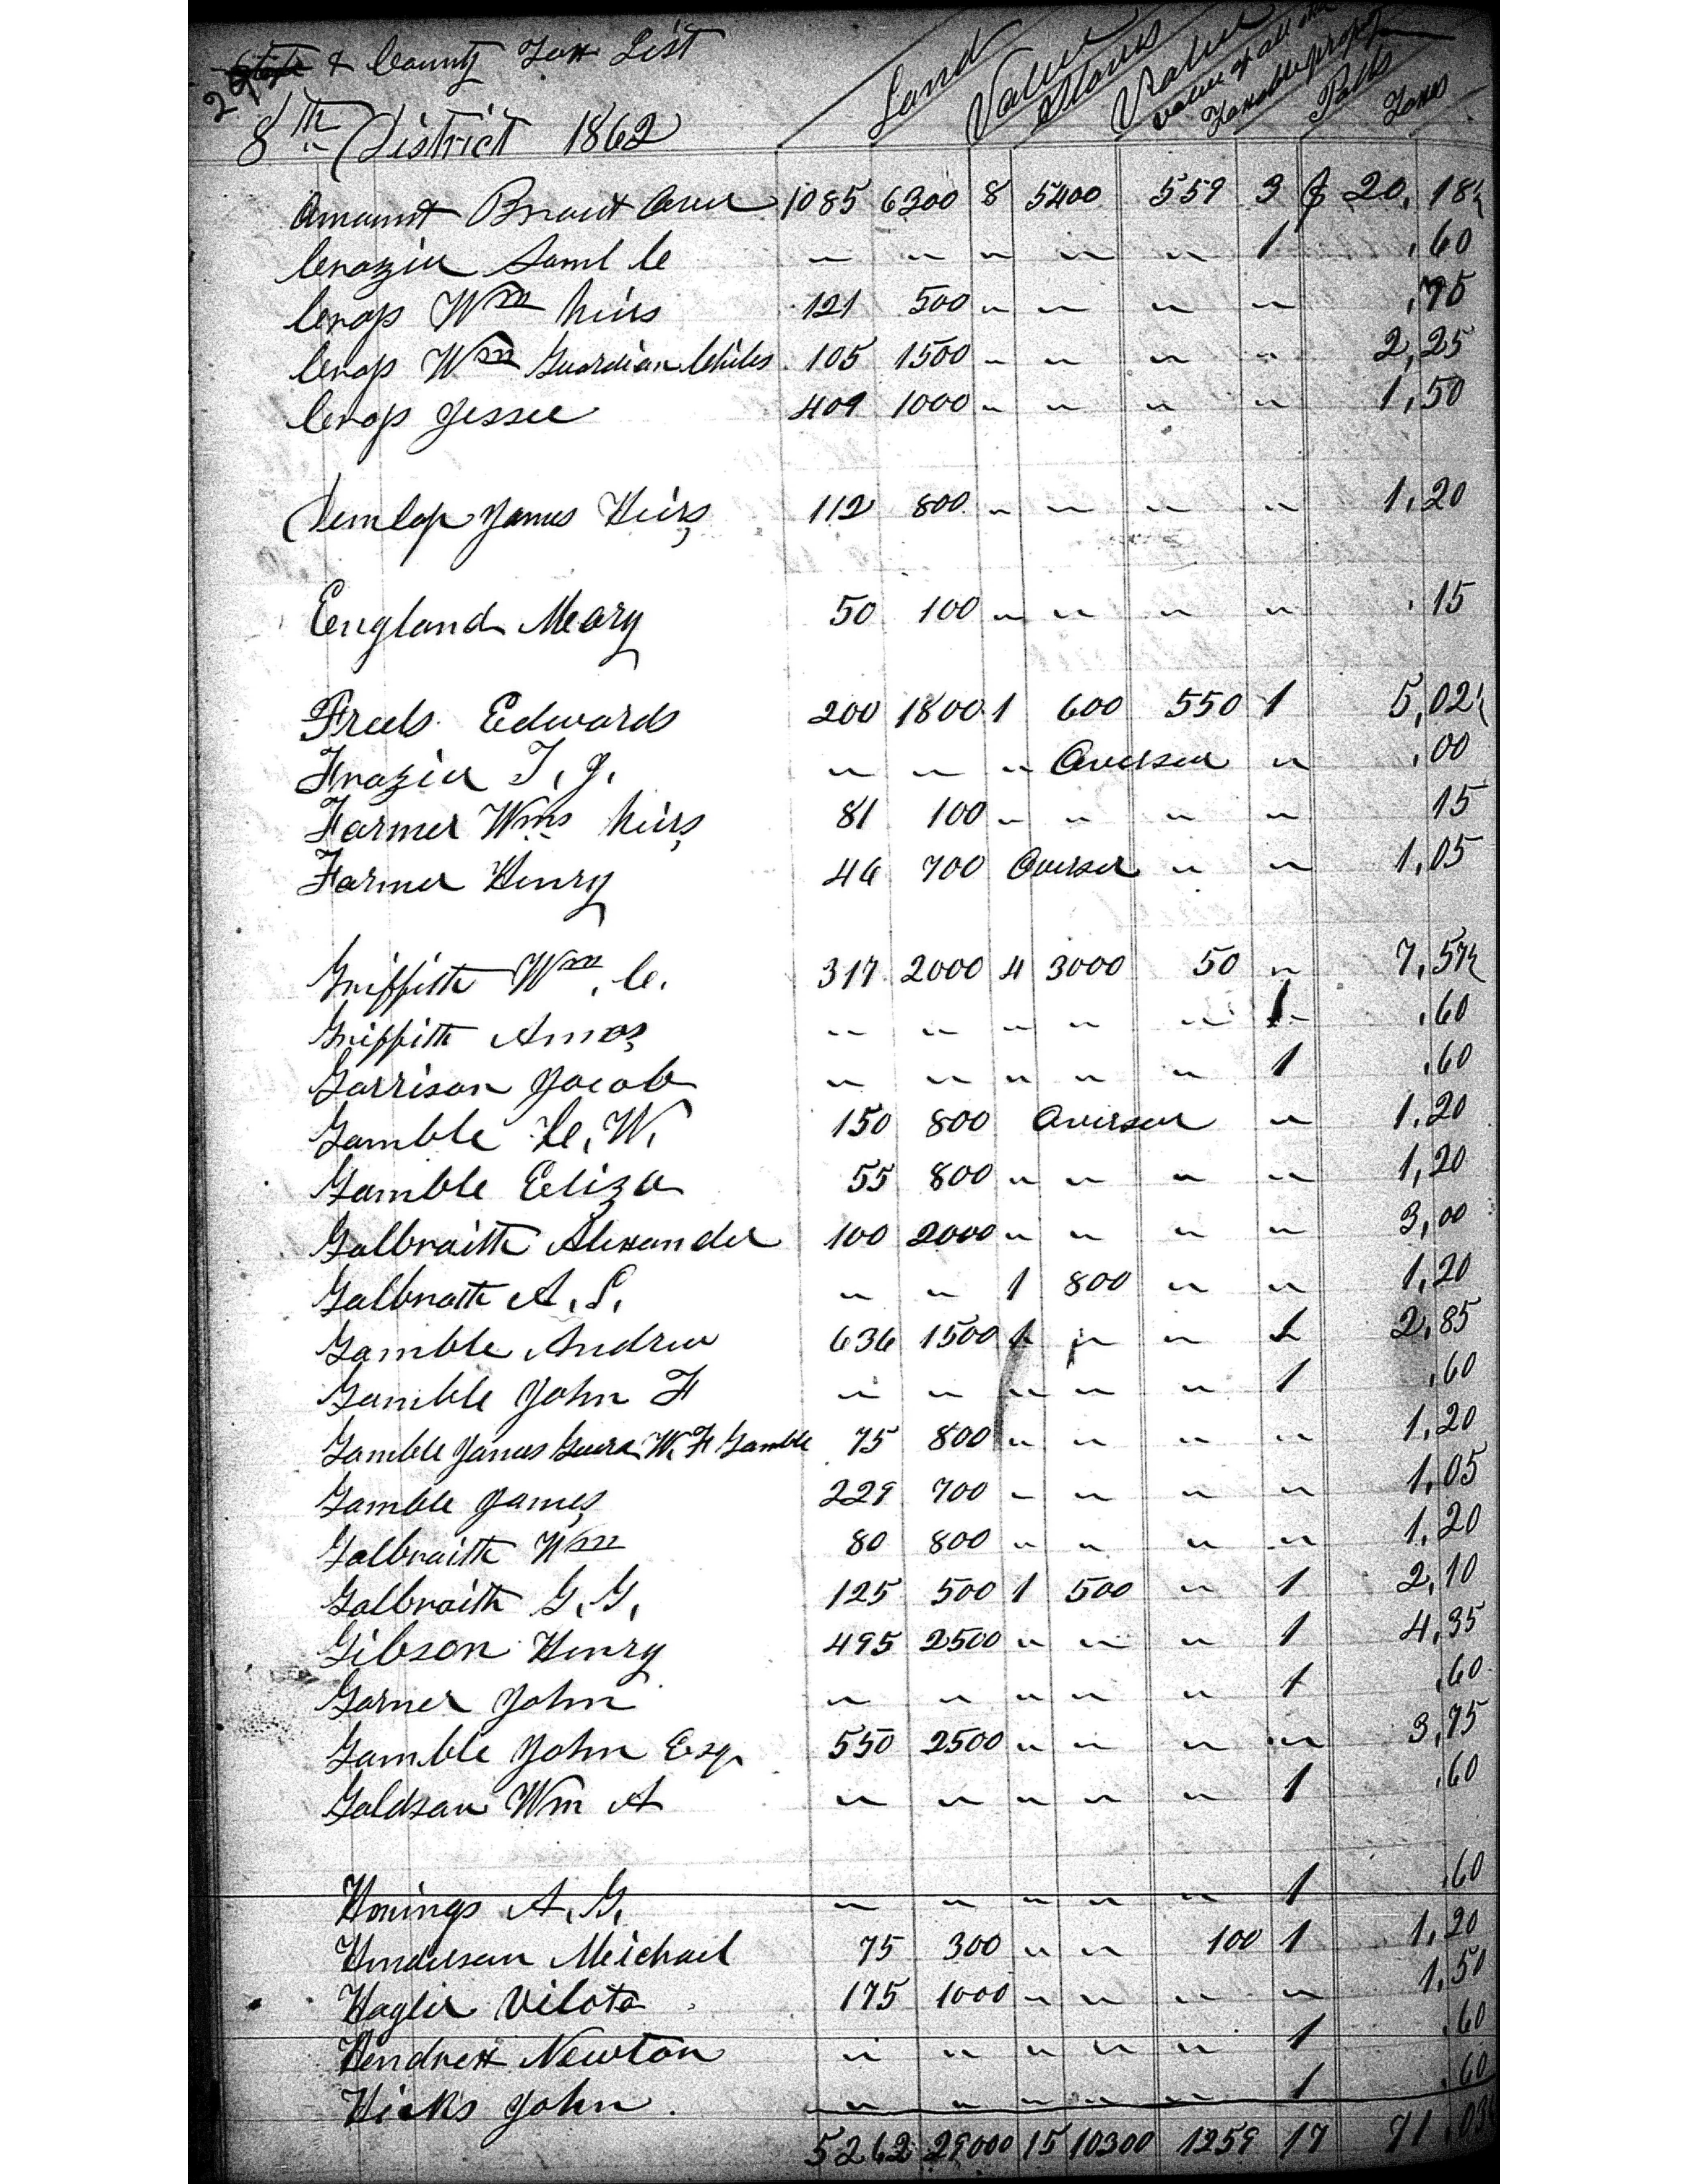 State & County Tax List
29
8th District 1862
Land Value Slaves Value Value of all other Taxable prop Polls Taxes
Amount Brought Over 1085 6300 8 5400 559 3 $ 20,18½
Crozier Saml C " " " " " 1 ,60
Crops Wm heirs 121 500 " " " " ,75
Crops Wm Guardian Childs 105 1500 " " " " 2,25
Crops Jessee 409 1000 " " " " 1,50
Dunlop James Heirs 112 800 " " " " 1,20
England Meary 50 100 " " " " ,15
Freels Edwards 200 1800 1 600 550 1 5,02½
Frazier T, J, " " " Overseer " ,00
Farmer Wms heirs 81 100 " " " " 15
Farmer Henry 46 700 Overser " " 1,05
Griffith Wm, C, 317 2000 4 3000 50 " 7,57½
Griffith Amos " " " " " 1 ,60
Garrison Jacob " " " " " 1 ,60
Gamble C, W, 150 800 Overseer " 1,20
Gamble Eliza 55 800 " " " " 1,20
Galbraith Alexander 100 2000 " " " " 3,00
Galbrath A, S, " " 1 800 " " 1,20
Gamble Andrew 636 1500 " " " 1 2,85
Gamble John F " " " " " 1 ,60
Gamble James W, F Gamble 75 800 " " " " 1,20
Gamble James 229 700 " " " " 1,05
Galbraith Wm 80 800 " " " " 1,20
Galbraith G, G, 125 500 1 500 " 1 2,10
Gibson Henry 495 2500 " " " 1 4,35
Garner John " " " " " 1 ,60
Gamble John Esqr 550 2500 " " " " 3,75
Goldsan Wm A " " " " " 1 ,60
Honings A, G, " " " " " 1 ,60
Henderson Meichael 75 300 " " 100 1 1,20
Hagler Vilota 175 1000 " " " " 1,50
Hendrex Newton " " " " " 1 ,60
Hicks John " " " " " 1 ,60
5262 29000 15 10300 1259 17 71,03½